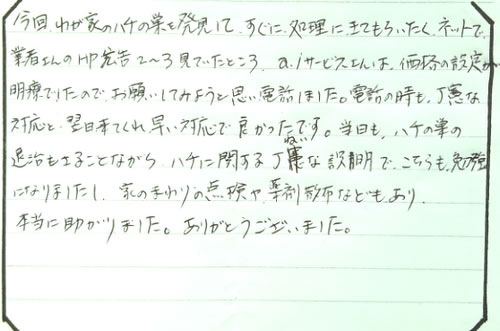 今回、わが家のハチの巣を発見して、すぐに処理にきてもらいたく、ネットで
業者さんのHP広告2〜3見ていたところ、a.iサービスさんは、価格の設定が
明瞭でしたので、お願いしてみようと思い電話しました。電話の時も、丁寧な
対応と、翌日来てくれ、早い対応で良かったです。当日も、ハチの巣の
退治もさることながら、ハチに関する丁寧ねいな説明で、こちらも勉強
になりましたし、家のまわりの点検や、薬剤散布などもあり、
本当に助かりました。ありがとうございました。